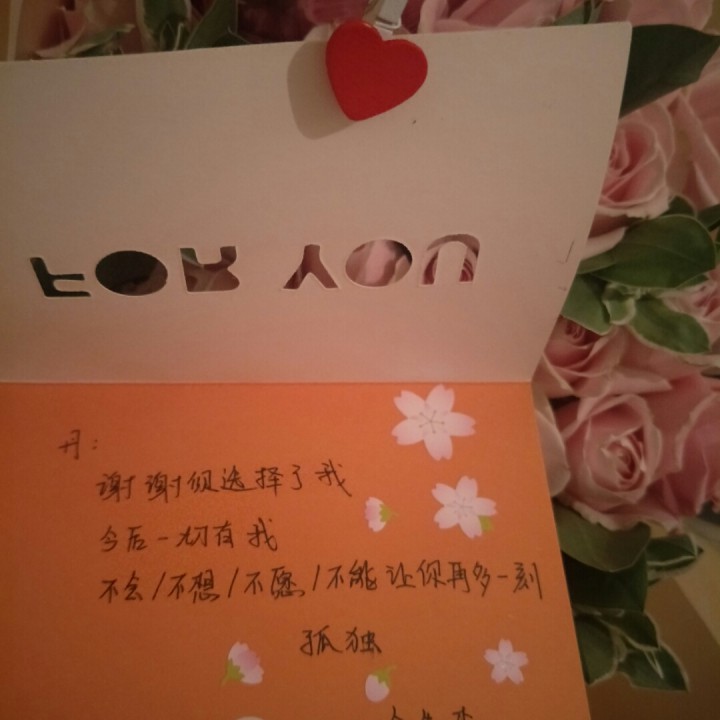 FOR YOU
丹：
谢谢你选择了我
今后一切有我
不会/不想/不愿/不能让你再多一刻
孤独